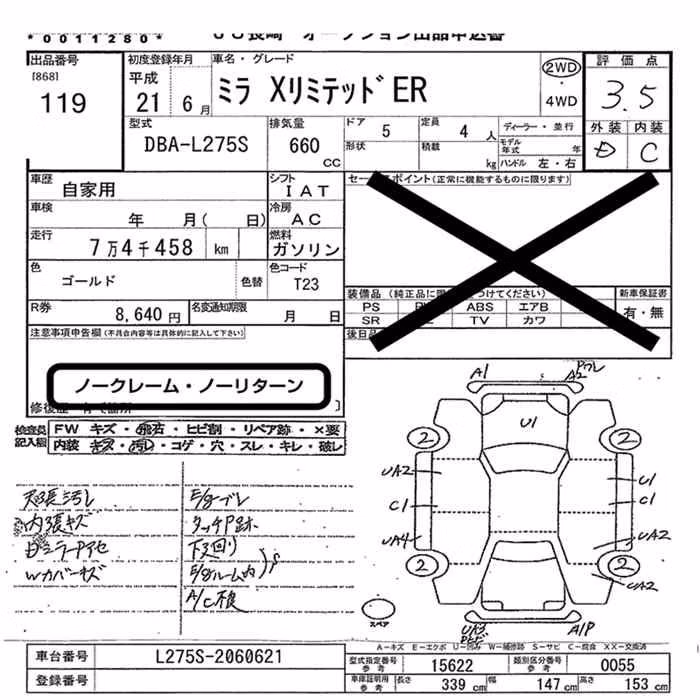 *0011280*
出品番号
[868]
119
初度登録年月
平成
21 6月
車名・グレード
ミラ XリミテッドER
2WD
・
4WD
評価点
3.5
外装 内装
D C
型式
DBA-L275S
排気量
660
CC
ドア
5
定員
4 人
ディーラー・並行
形状
積載
kg
モデル年式
年
ハンドル 左・右
車歴
自家用
シフト
IAT
車検
年 月( 日)
冷房
AC
走行
7万4千458 km
燃料
ガソリン
色
ゴールド
色替
色コード
T23
R券
8,640円
名変通知期限
月 日
セールスポイント(正常に機能するものに限ります)
装備品
PS ABS エアB
SR TV カワ
新車保証書
有・無
注意事項申告欄(不具合内容等は具体的に記入して下さい)
ノークレーム・ノーリターン
検査員記入欄
FW キズ・飛石・ヒビ割・リペア跡・×要
内装 キズ・汚レ・コゲ・穴・スレ・キレ・破レ
天張汚レ
内張キズ
Wカバーキズ
E/gブレ
タッチP跡
下廻り
E/gルーム内
S
A/C検
A1
A2
Pワレ
U1
2
2
UA2
U1
C1
C1
UA4
UA2
2
2
UA2
UA3
A1P
スペア
A-キズ E-エクボ U-凹み W-補修跡 S-サビ C-腐食 XX-交換済
車台番号
L275S-2060621
登録番号
型式指定番号
参考
15622
類別区分番号
参考
0055
車庫証明用
参考
長さ
339 cm
幅
147 cm
高さ
153 cm